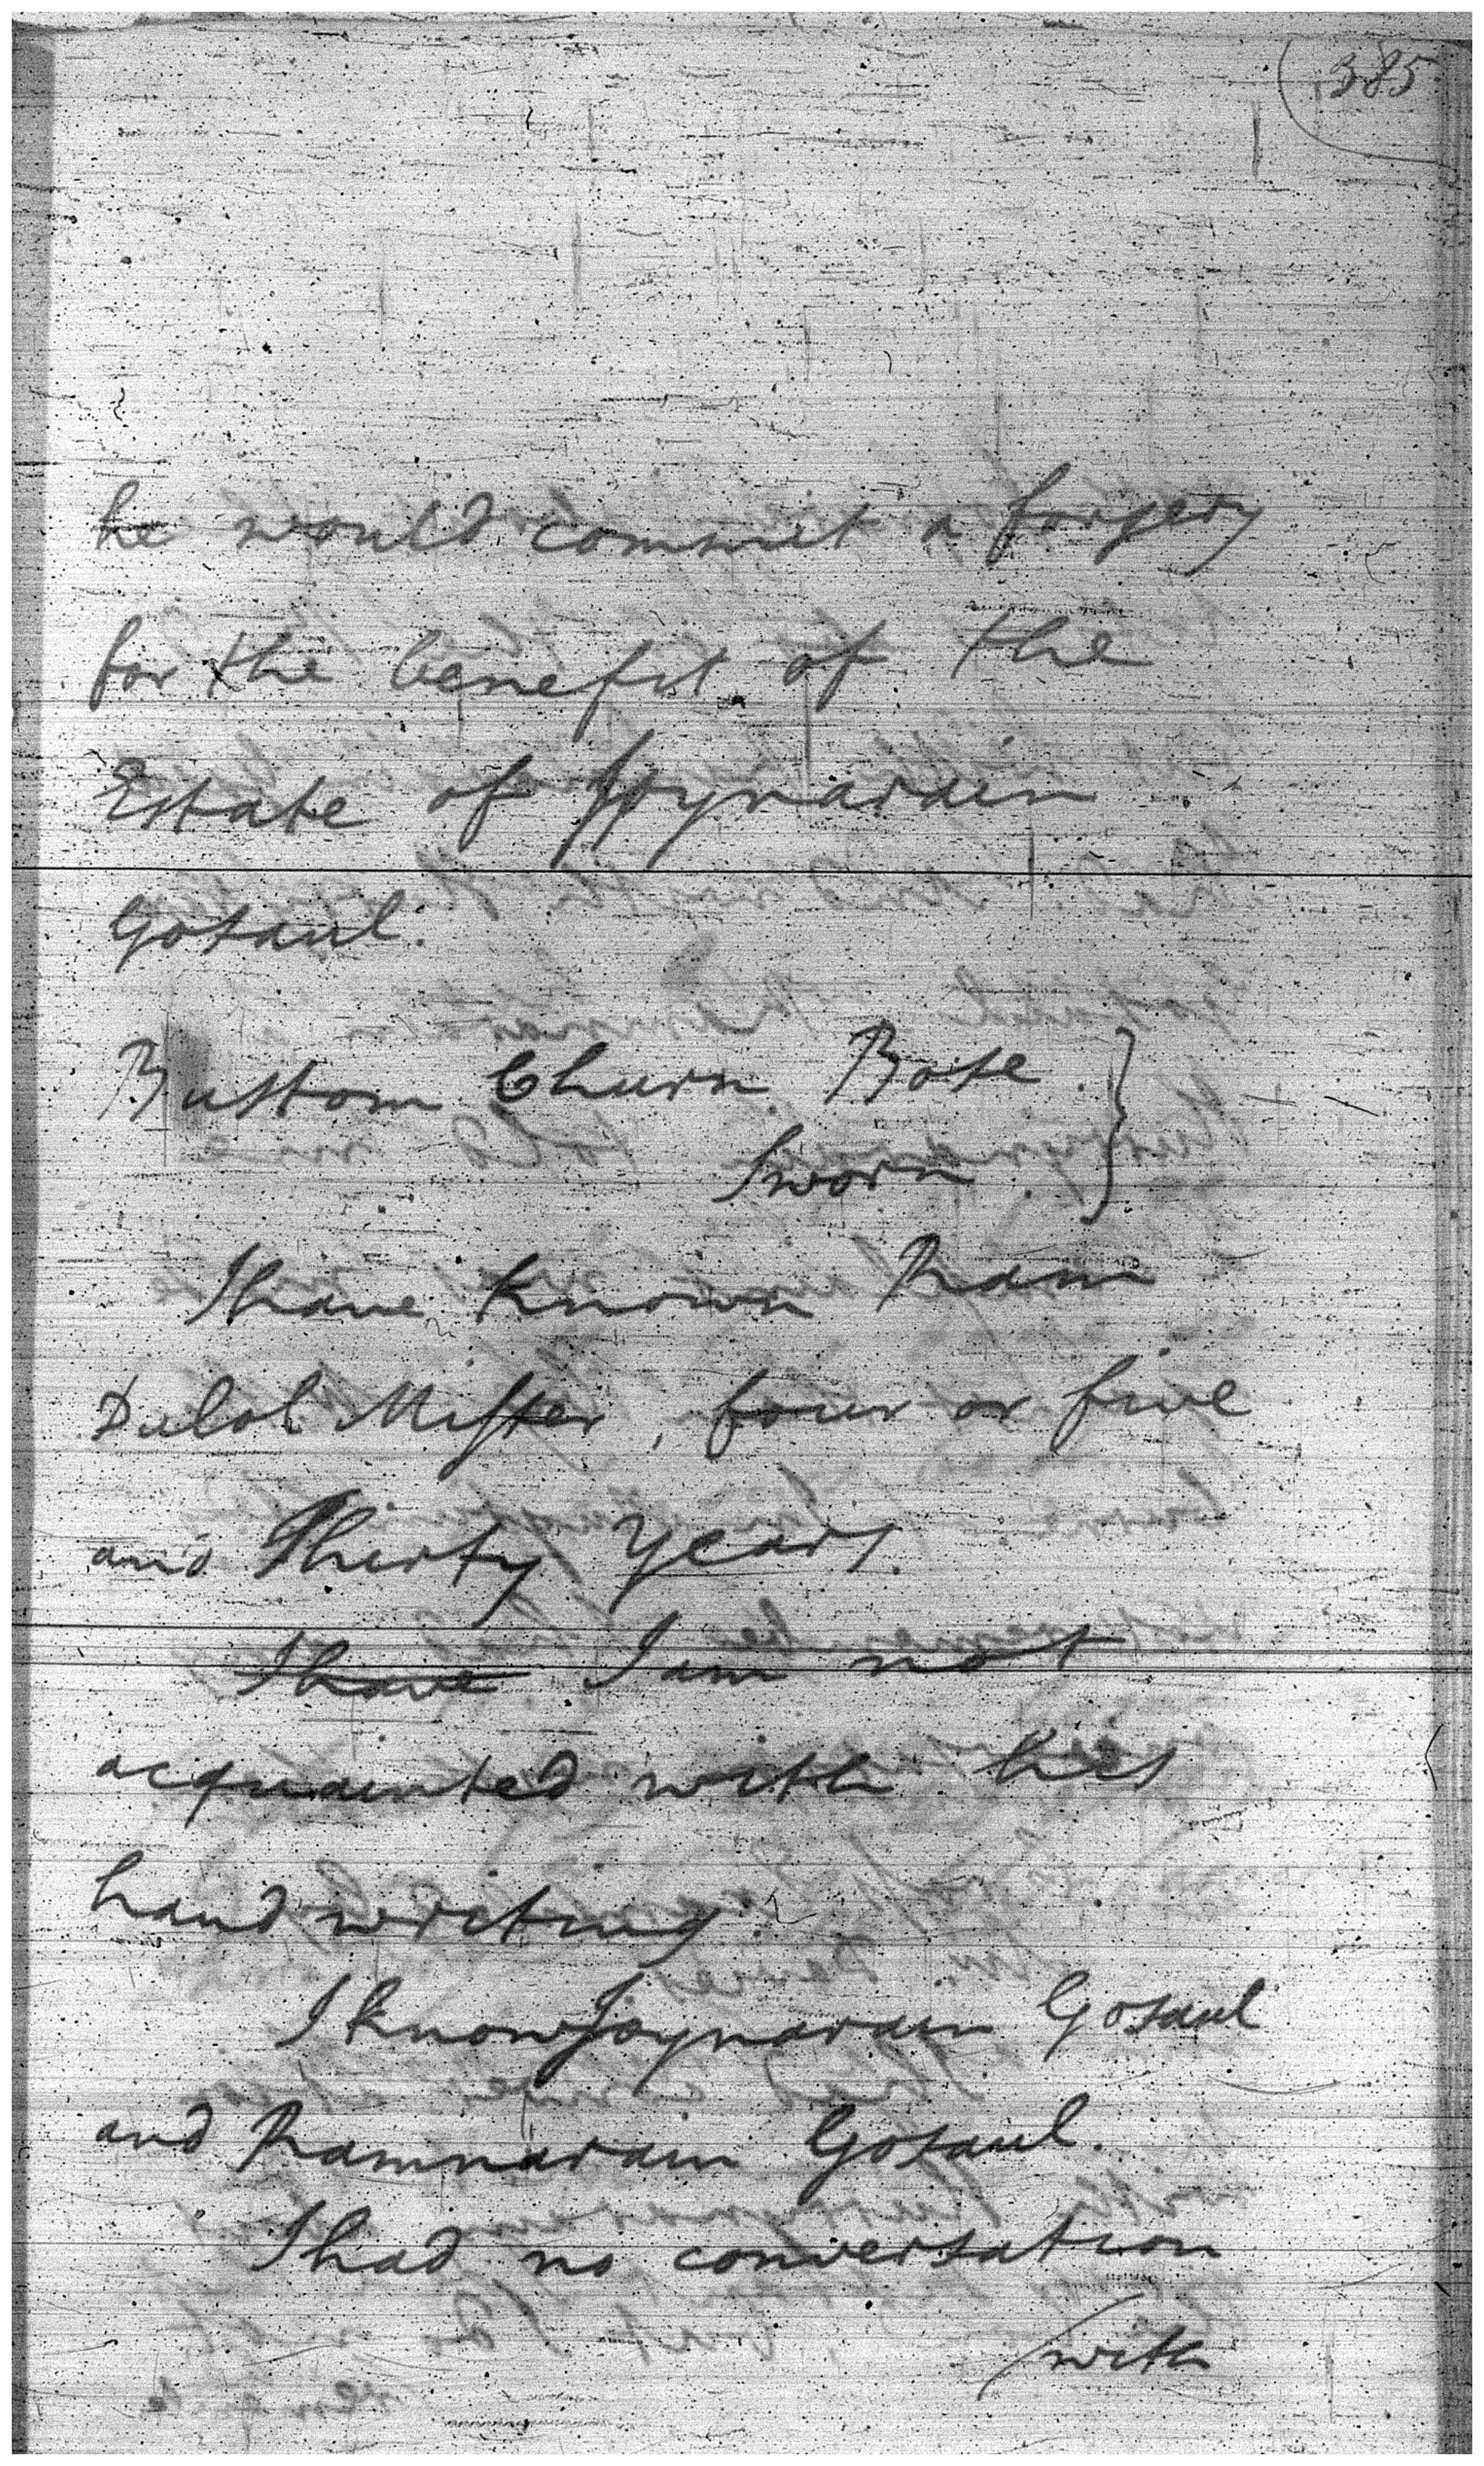 385
he would commit a forgery
for the benefit of the
Estate of Joynarain
Gosaul.
Bustom Churn Bose }
Sworn
I have known Ram
Dulol Misser, four or five
and Thirty Years.
I have I am not
acquainted with his
hand writing.
I know Joynarain Gosaul
and Ramnarain Gosaul.
I had no conversation
with